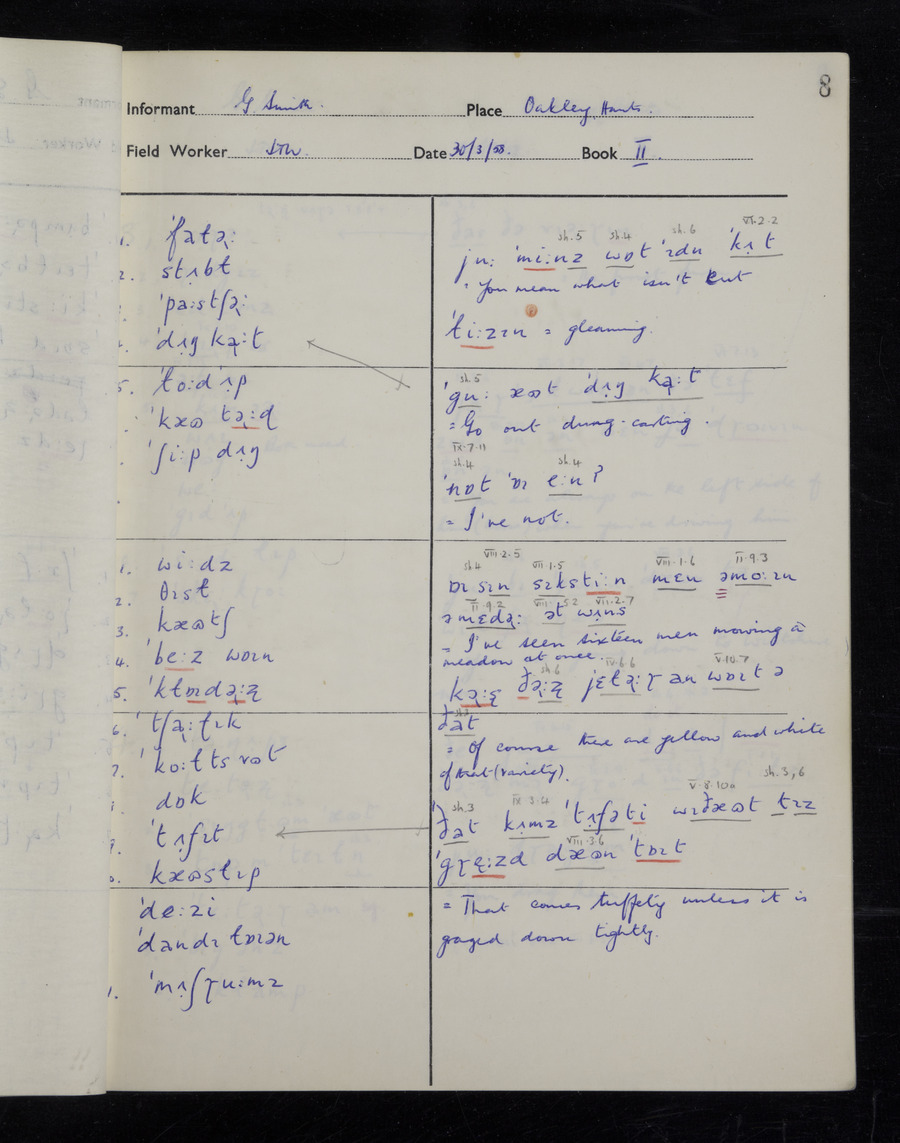 8
Informant G. Smith. Place Oakley, Hants.
Field Worker Date 30/3/58. Book II.
1. ˈfatə̣ː
2. stɹ̣bt
ˈpaːstʃə̣ː
ˈdɹ̣g kạːt
5. ˈtoːdˈɹ̣p
ˈkxɷ tə̣ːd
ˈʃiːp dɹ̣g
1. wiːdz
2. θɪst
3. kxɷtʃ
4. ˈbeːz wɒɪn
5. ˈklɒɪdə̣ːz
6. ˈtʃạːlɪk
7. ˈkoːlts vɷt
dɒk
ˈtɹ̣fɪt
kxɷslɪp
ˈdeːzi
ˈdandɪ lɒɪən
ˈmɹ̣ʃɽuːmz
sh.5 sh.4 sh.6 VI.2.2
juː ˈmiːnz wɒt ˈɪdn ˈkɹ̣t
= You mean what isn't cut
ˈliːzɪn = gleaning.
sh.5
ˈguː xɷt ˈdɹ̣g kạːt
= Go out dung-casting.
IX.7.11
sh.4 sh.4
ˈnɒt ˈɒɪ eːn?
= I've not.
VIII.2.5
sh.4 VII.1.5 VIII.1.6 II.9.3
ɒɪ sɪn sɪkstiːn mɛn əmoːɪn
II.9.2 VII.2.7
əmɛdə̣ː ət wɹ̣ns
= I've seen sixteen men mowing a
meadow at once.
sh.6 V.10.7
ðə̣ːz jɛlə̣ːɽ an wɒɪt ə
ðat
= Of course there are yellow and white
of that (variety).
sh.3 IX.3.4 V.8.10a sh.3,6
ðat kɹ̣mz ˈtɹ̣fəti wɪðxɷt tɪz
VIII.3.6
ˈgɽẹːzd dxɷn ˈtɒɪt
= That comes tuffety unless it is
grazed down tightly.